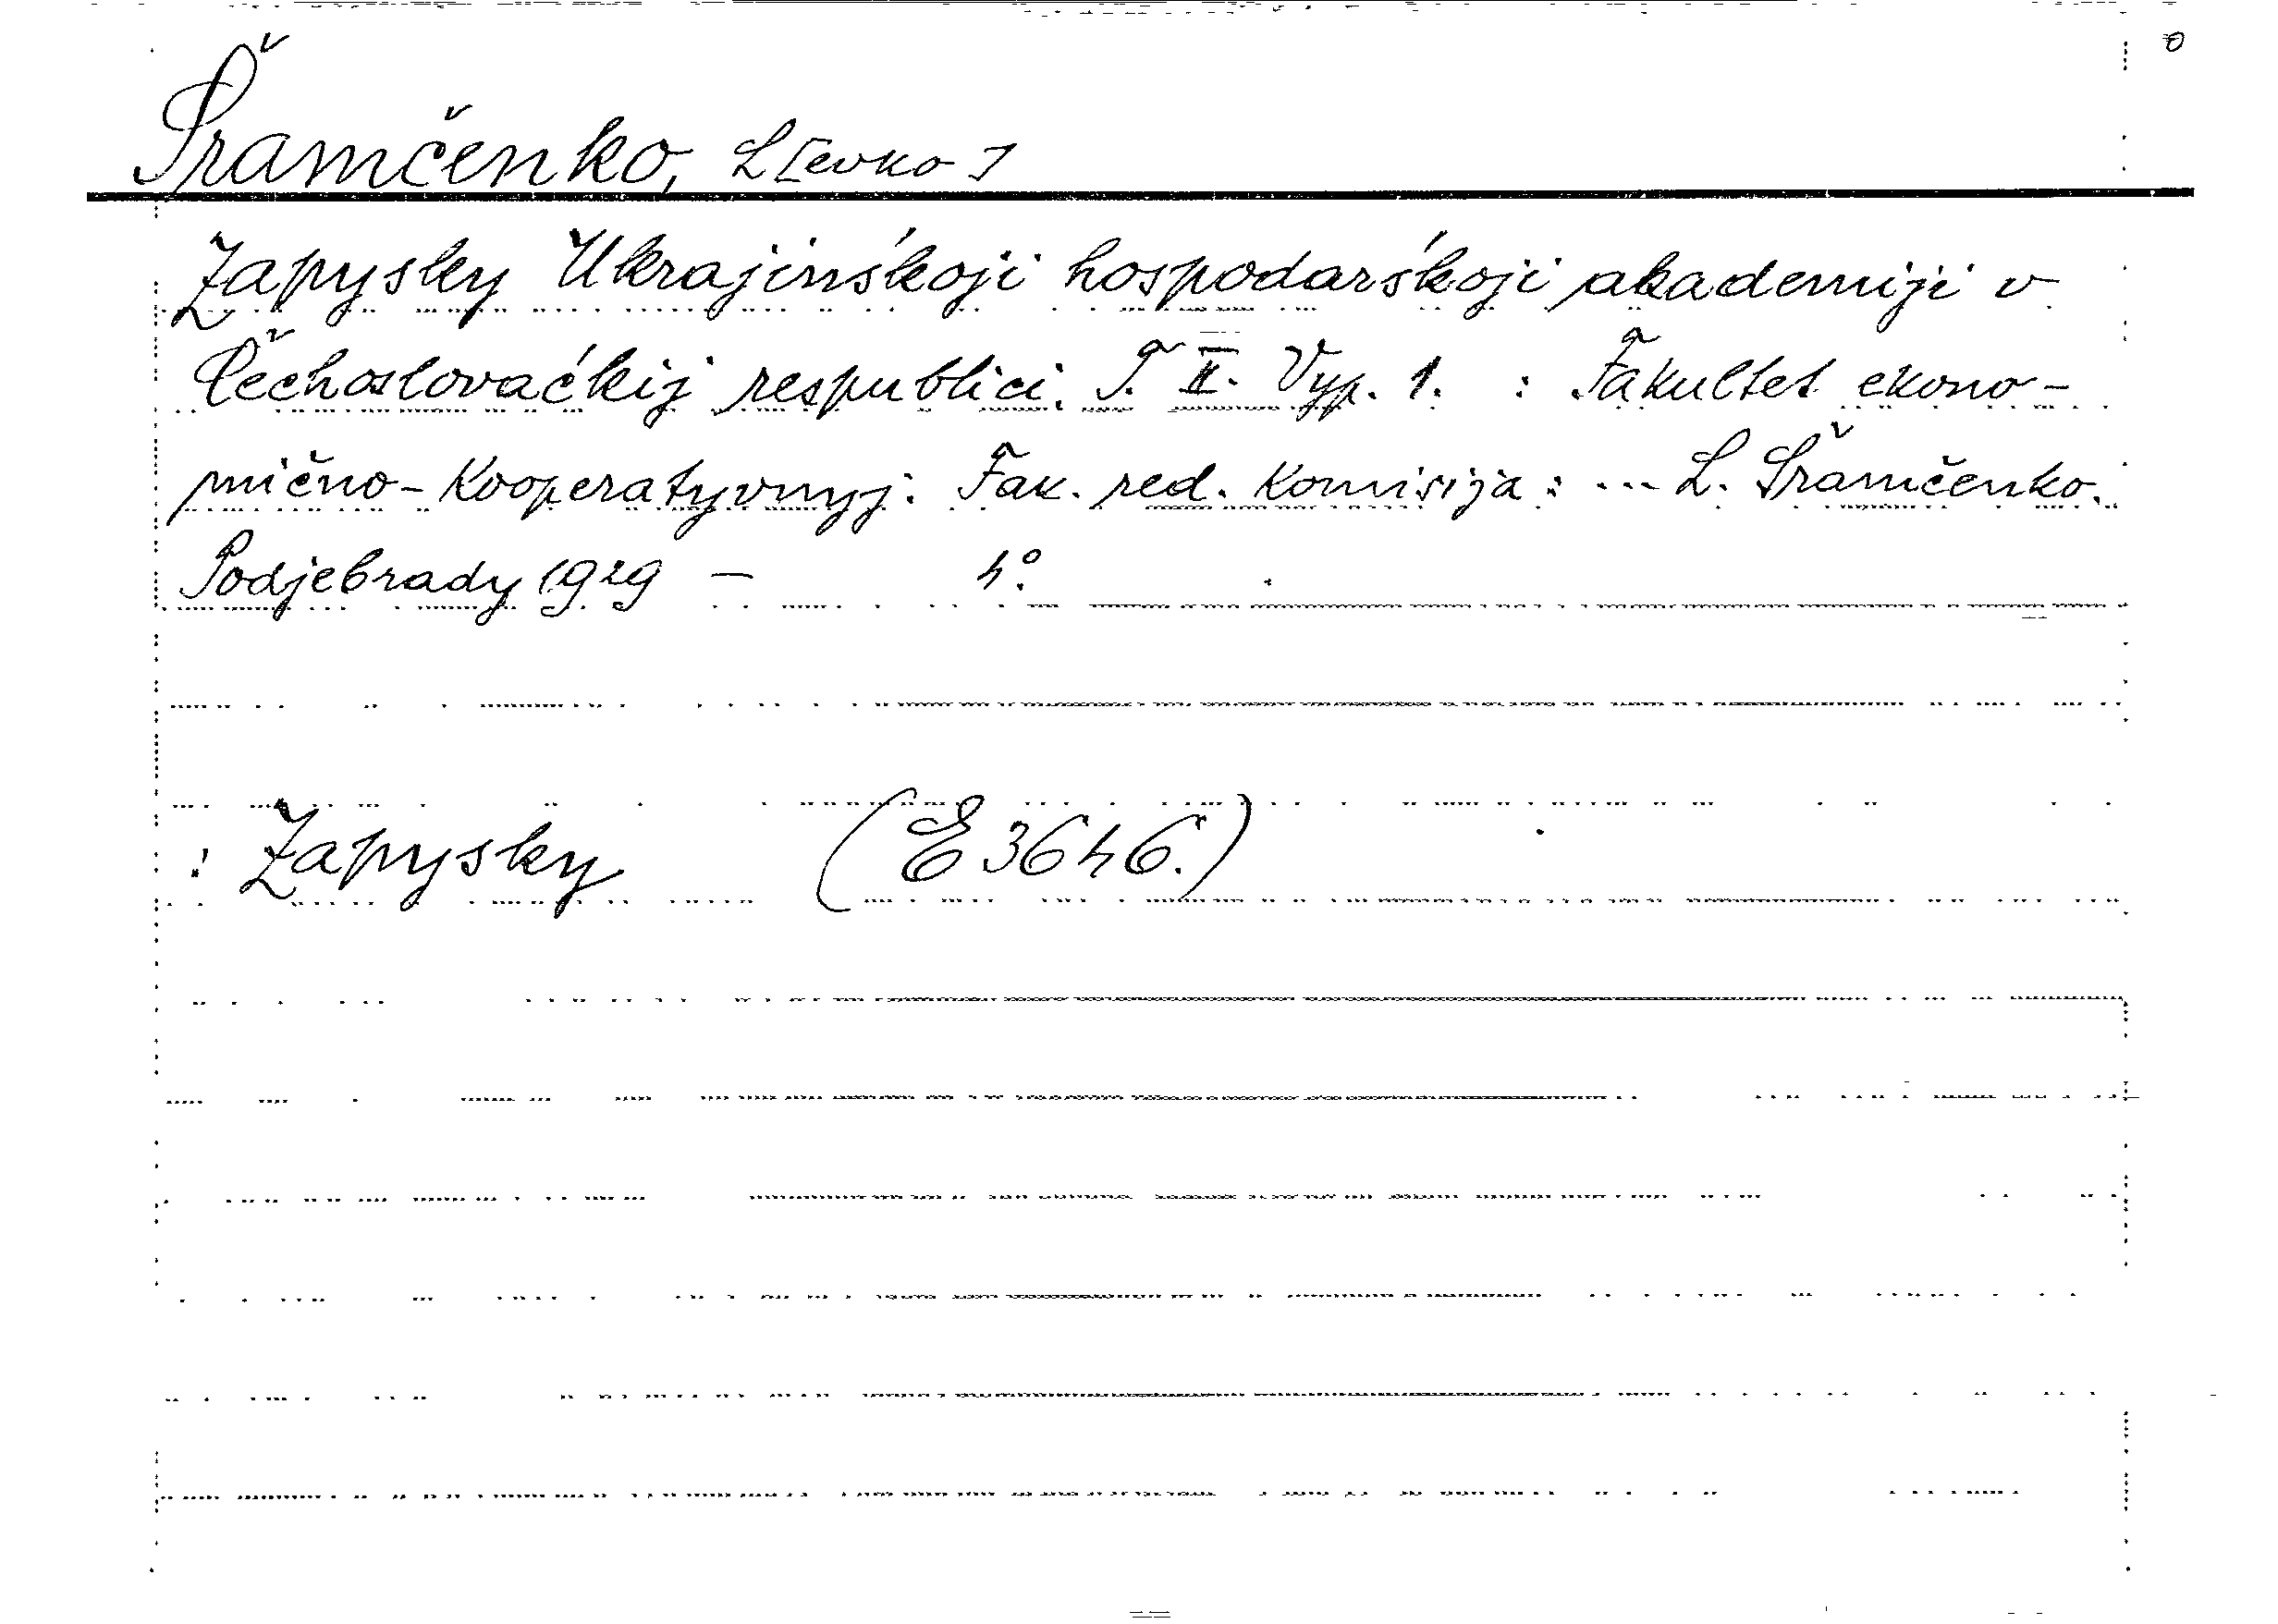 Šramčenko, L[evko]
Zapysky Ukrajinśkoji hospodarśkoji akademiji v
Čechoslovaćkij respublici. T. II. Vyp. 1. : Fakultet ekono-
mično-kooperatyvnyj: Fak. red. komisija: ... L. Šramčenko.
Podjebrady 1929 — 4°.
: Zapysky (E 3646.)